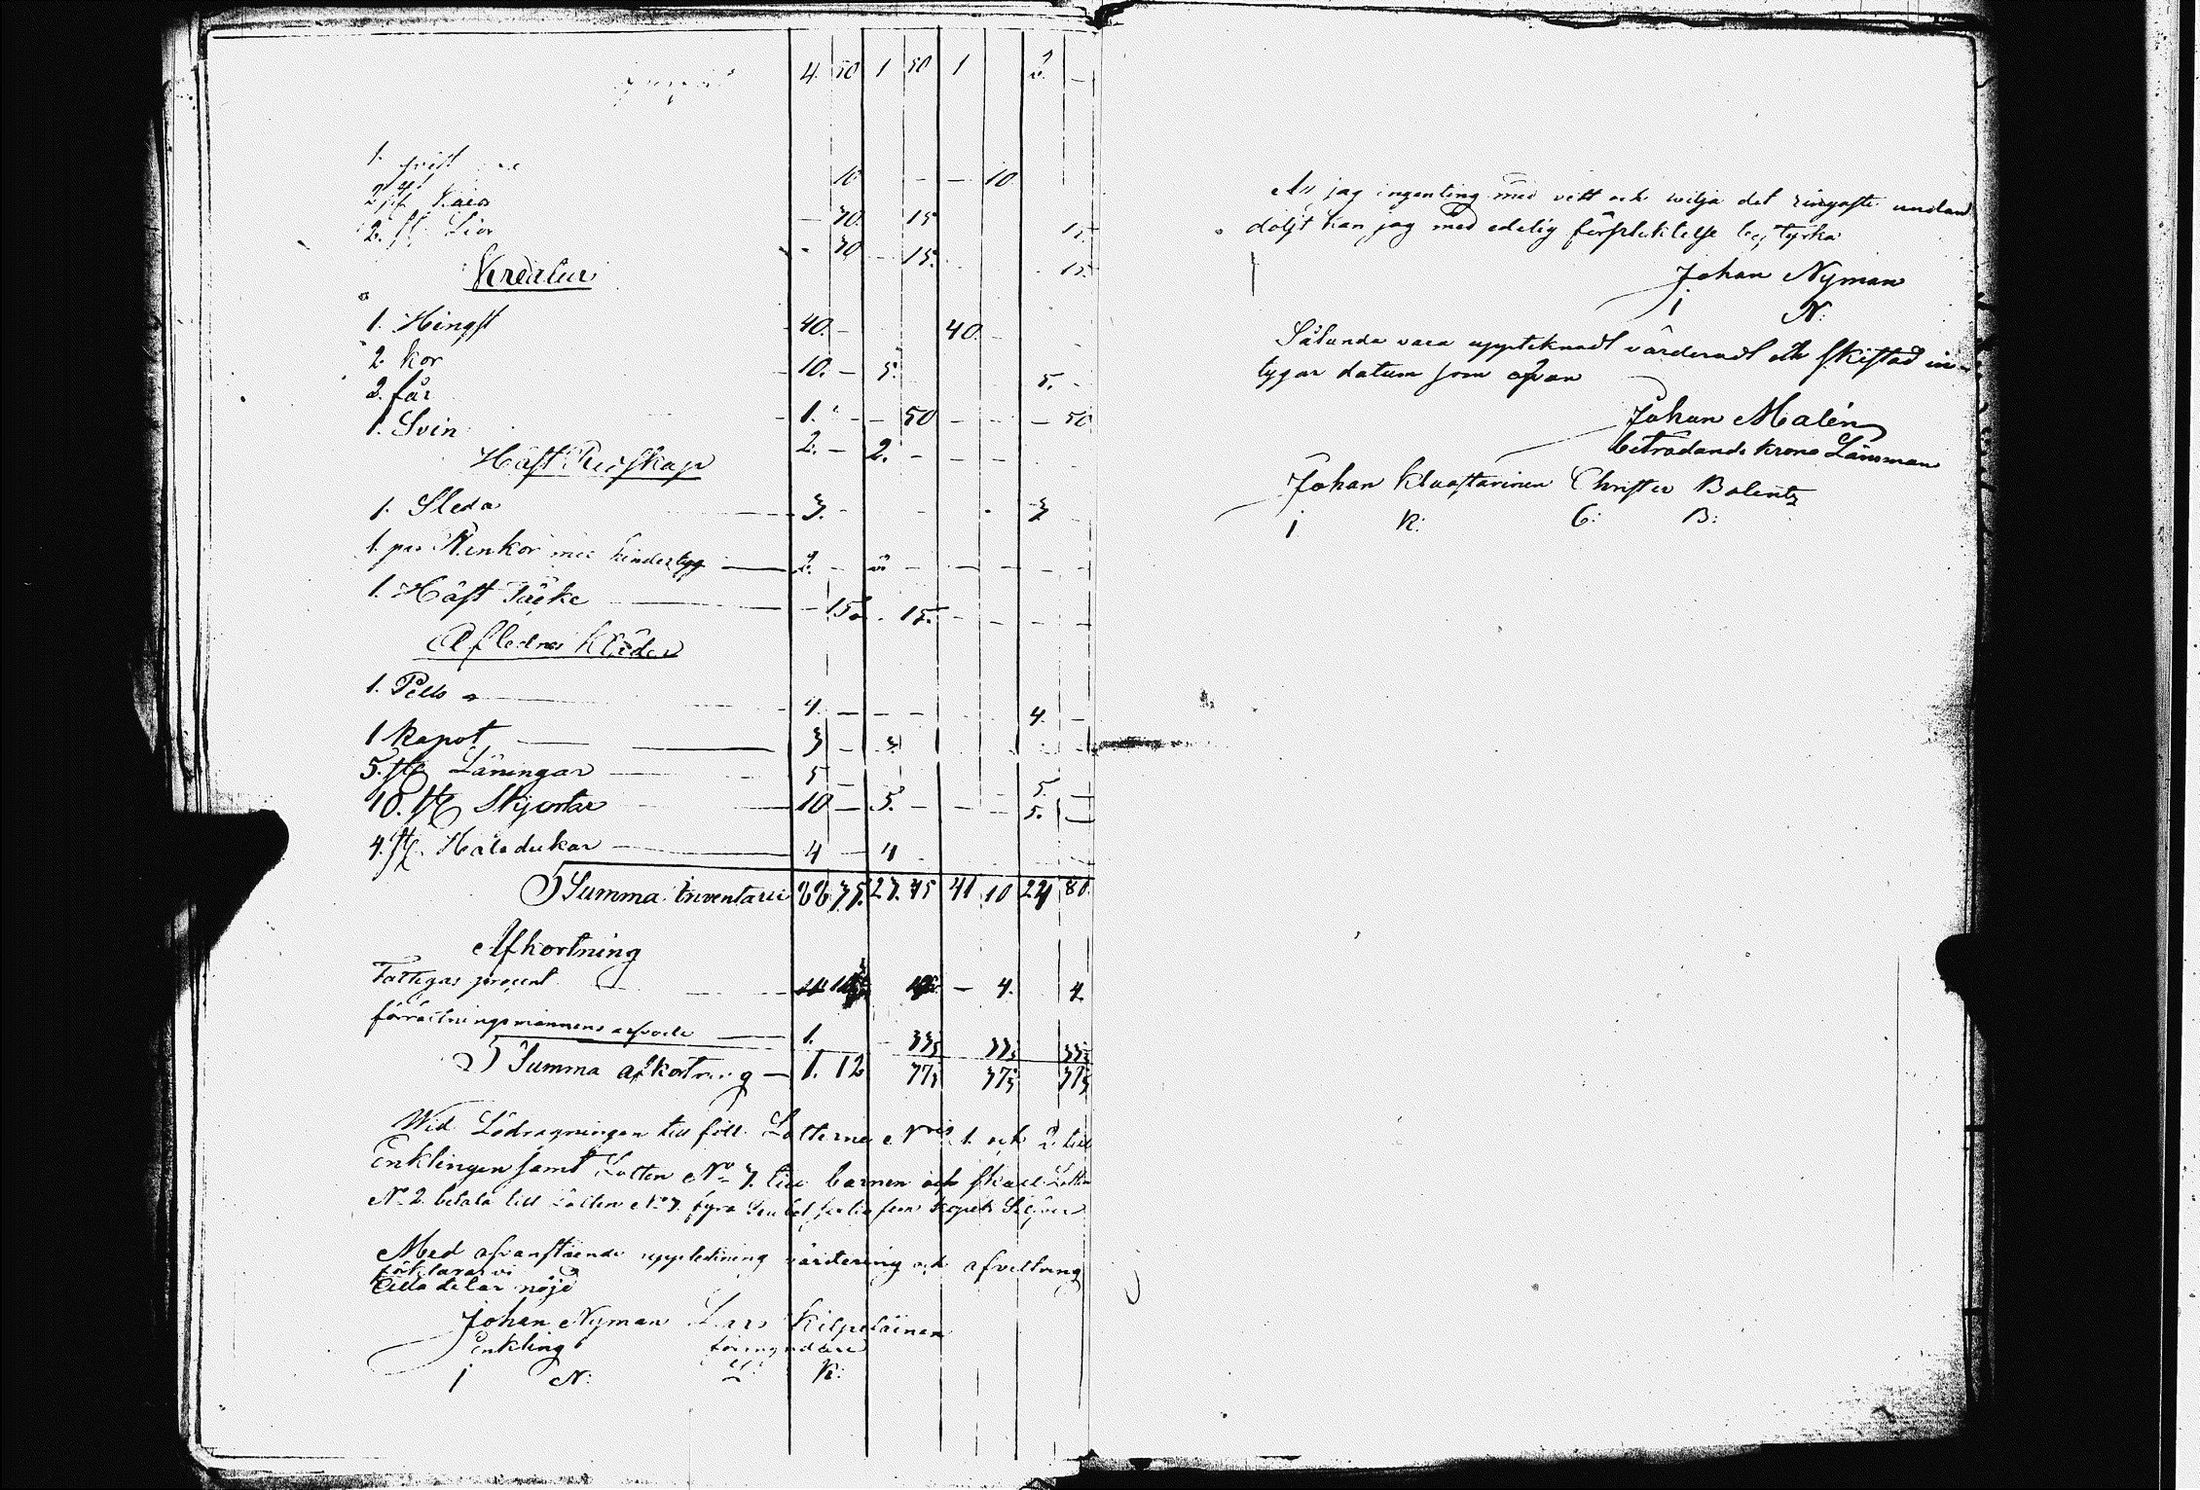 4. 50 1 50 1 2. —
1.
10. — — 10
2 — 30. 15 15.
2. st. — 30 — 15. 15.
Kreatur
1. Hingst 40. — 40. —
2. kor 10. — 5. 5. —
2. får 1. — — 50 — — — 50
1. Svin 2. — 2. — — —
Häst Redskap
1. Sleda 3. — 3
1. par med 2. — 2. — — — — —
1. Häst Täcke — 15. 15. — — — —
Aflednes Kläder
1. Pels 4. — — — 4. —
1 kapot 3 — 3
5. st Läningar 5 — 5. —
10. st Skjortor 10 — 5. — — — 5. —
4. st. Halsdukar 4 — 4
Summa Inventarii 88 75. 27. 45 41 10 24 80.
Afkortning
Fattigas procent — 4. 4
förrättningsmännens arfvode 1. 33⅓ 33⅓ 33⅓
Summa afkortning — 1. 12 37⅓ 37⅓ 37⅓
Wid Lödragningen till föll Lotterne Nris 1. och 2. till
Enklingen samt Lotten No 3. till barnen och skall Lotten
No 2. betala till Lotten No 3. fyra fem kopek Silfver
Med ofvanstående uppteckning värdering och afvittring
förklaras vi
alla delar nöjd
Johan Nyman Lars Kilpeläinen
Enkling förmyndare
J N: L: K:
At jag ingenting med vett och wilja det ringaste undan
döljt kan jag med edelig förpliktelse betyrka
Johan Nyman
J N:
Sålunda vara uppteknadt värderadt och skiftad in-
tygar datum som ofvan
Johan Malén
beträdande krono Länsman
Johan Kluastarinen Christer Balentz
J K: C: B: